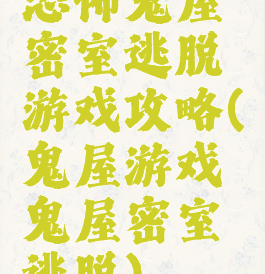 恐怖鬼屋
密室逃脱
游戏攻略(
鬼屋游戏
鬼屋密室
逃脱)